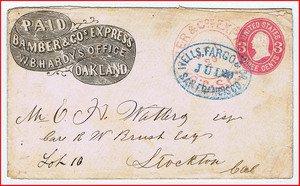 PAID
BAMBER & CO'S EXPRESS
W.B. HARDY'S OFFICE
OAKLAND.
WELLS, FARGO & CO
JUL 20
SAN FRANCISCO
UNITED STATES
3 3
THREE CENTS
Mr O. H. Esq
Care R W Brush Esqr
Lot 10 Stockton
Cal